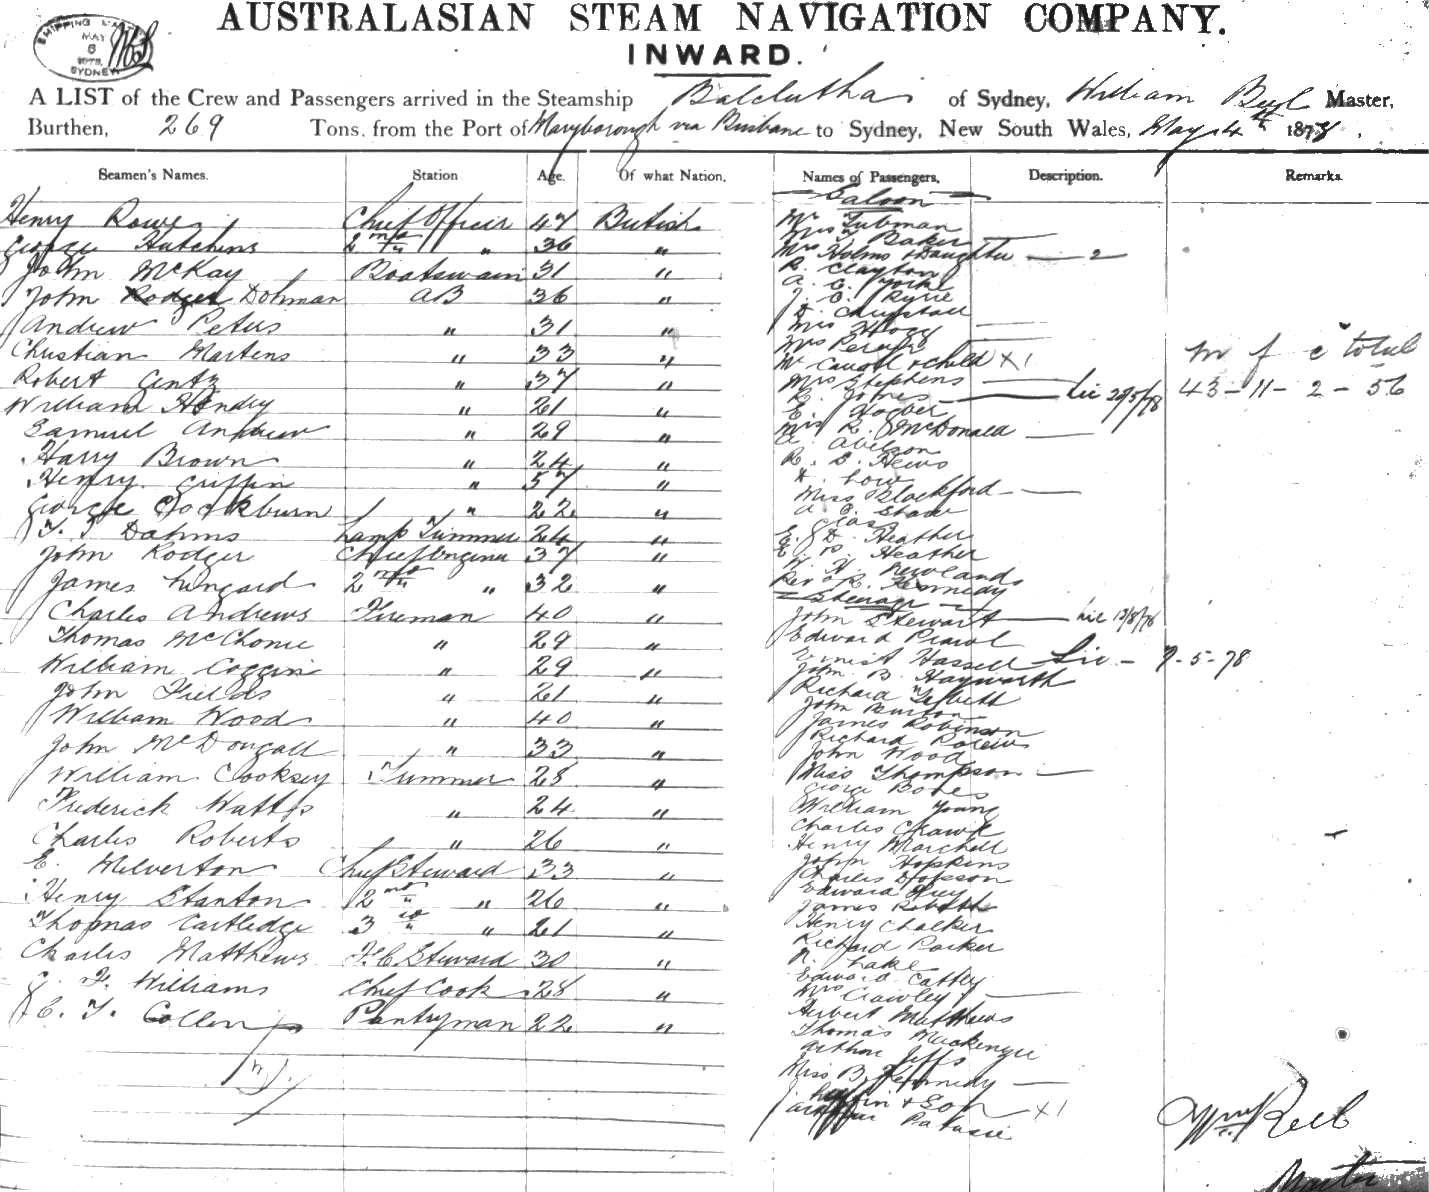 AUSTRALASIAN STEAM NAVIGATION COMPANY.
SHIPPING MAY 6 1878 SYDNEY
INWARD.
A LIST of the Crew and Passengers arrived in the Steamship Balclutha of Sydney, William Master,
Burthen, 269 Tons. from the Port of Maryborough via Brisbane to Sydney, New South Wales, May 4th 1878.
Seamen's Names. Station Age. Of what Nation.
Henry Rowe Chief Officer 47 British
George Hutchins 2nd " " 36 "
John McKay Boatswain 31 "
John Rodger Dohman AB 36 "
Andrew Peters " 31 "
Christian Martens " 33 "
Robert Gentz " 37 "
William Hendry " 21 "
Samuel Andrew " 29 "
Harry Brown " 24 "
Henry Griffin " 57 "
George Cockburn " 22 "
J. T Dahms Lamp Trimmer 24 "
John Rodger Chief Engineer 37 "
James Lingard 2nd " " 32 "
Charles Andrews Fireman 40 "
Thomas McChonie " 29 "
William Coggin " 29 "
John Fields " 21 "
William Wood " 40 "
John McDougall " 33 "
William Cooksey Trimmer 28 "
Frederick Watts " 24 "
Charles Roberts " 26 "
E. Milverton Chief Steward 33 "
Henry Stanton 2nd " " 26 "
Thomas Cartledge 3rd " " 21 "
Charles Matthews F.C. Steward 30 "
G. F. Williams Chief Cook 28 "
C. T. Collen Pantryman 22 "
Names of Passengers. Description. Remarks.
Saloon
Mr Tubman
Mrs T Baker
Mrs Holms & Daughter 2
R. Clayton
A. C. Yorke
J. C. Ryrie
Mrs Hogg
Mrs
Mr & child X1
Mrs Stephens
R. Jones Lic 22/5/78
E.
Mrs R. McDonald
A Abelson
R. D. Hews
Low
Miss Blackford
A C. Shaw
E. D. Heather
E. Heather
Newlands
Revd R. Kennedy
Steerage
John Stewart Lic 12/8/78
Edward
Ernest Hassell Lic - 7-5-78
John B. Hayworth
Richard Tesbeth
John Burton
James Robinson
Richard
John Wood
Miss Thompson
George Bones
William Young
Charles
Henry Marchell
John Hopkins
Charles Hopson
Edward Grey
James
Henry Chalker
Richard Parker
Lake
Edward Cattley
Mrs Crawley
Herbert Matthews
Thomas Mackenzie
Arthur Jeffs
Miss B. Kennedy
& Son X1
Arthur
m f c total
43 - 11 - 2 - 56
Wm
Master